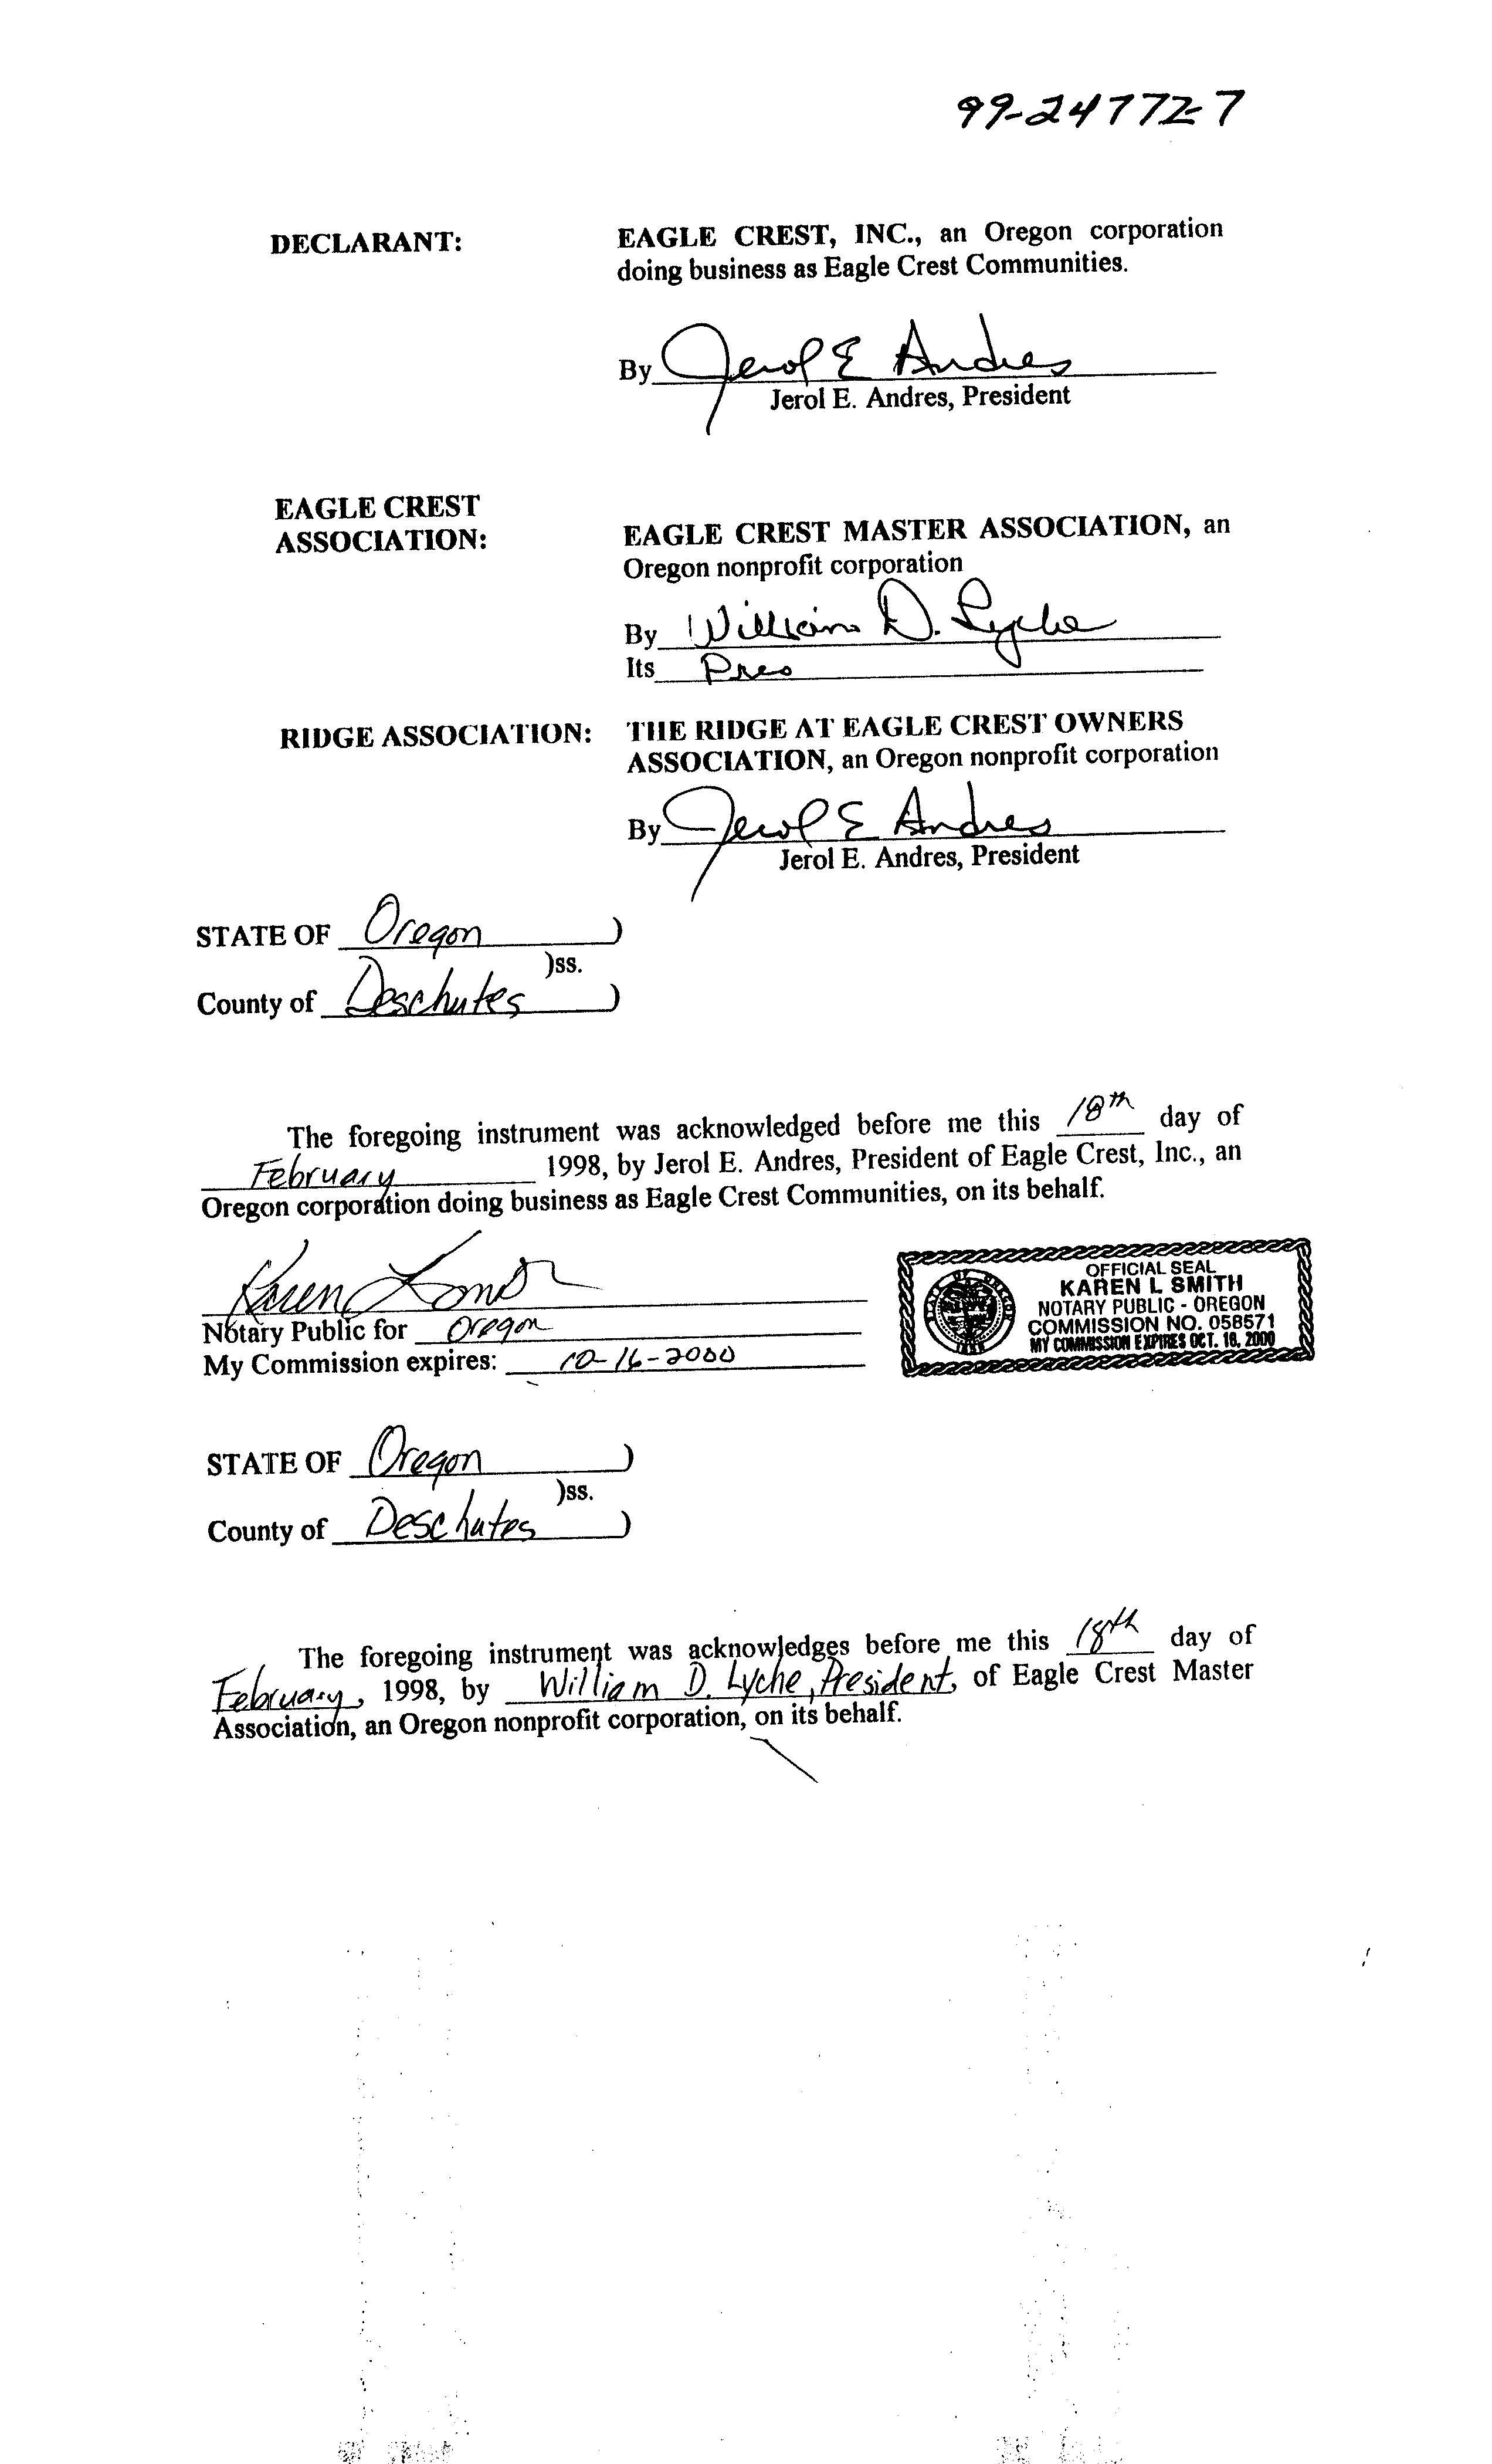 99-24772-7
DECLARANT: EAGLE CREST, INC., an Oregon corporation
doing business as Eagle Crest Communities.
By Jerol E Andres
Jerol E. Andres, President
EAGLE CREST
ASSOCIATION: EAGLE CREST MASTER ASSOCIATION, an
Oregon nonprofit corporation
By William D. Lyche
Its Pres
RIDGE ASSOCIATION: THE RIDGE AT EAGLE CREST OWNERS
ASSOCIATION, an Oregon nonprofit corporation
By Jerol E Andres
Jerol E. Andres, President
STATE OF Oregon )
)ss.
County of Deschutes )
The foregoing instrument was acknowledged before me this 18th day of
February 1998, by Jerol E. Andres, President of Eagle Crest, Inc., an
Oregon corporation doing business as Eagle Crest Communities, on its behalf.
Karen L Smith
Notary Public for Oregon
My Commission expires: 10-16-2000
STATE OF OREGON
OFFICIAL SEAL
KAREN L SMITH
NOTARY PUBLIC - OREGON
COMMISSION NO. 058571
MY COMMISSION EXPIRES OCT. 16, 2000
STATE OF Oregon )
)ss.
County of Deschutes )
The foregoing instrument was acknowledges before me this 18th day of
February, 1998, by William D. Lyche, President, of Eagle Crest Master
Association, an Oregon nonprofit corporation, on its behalf.